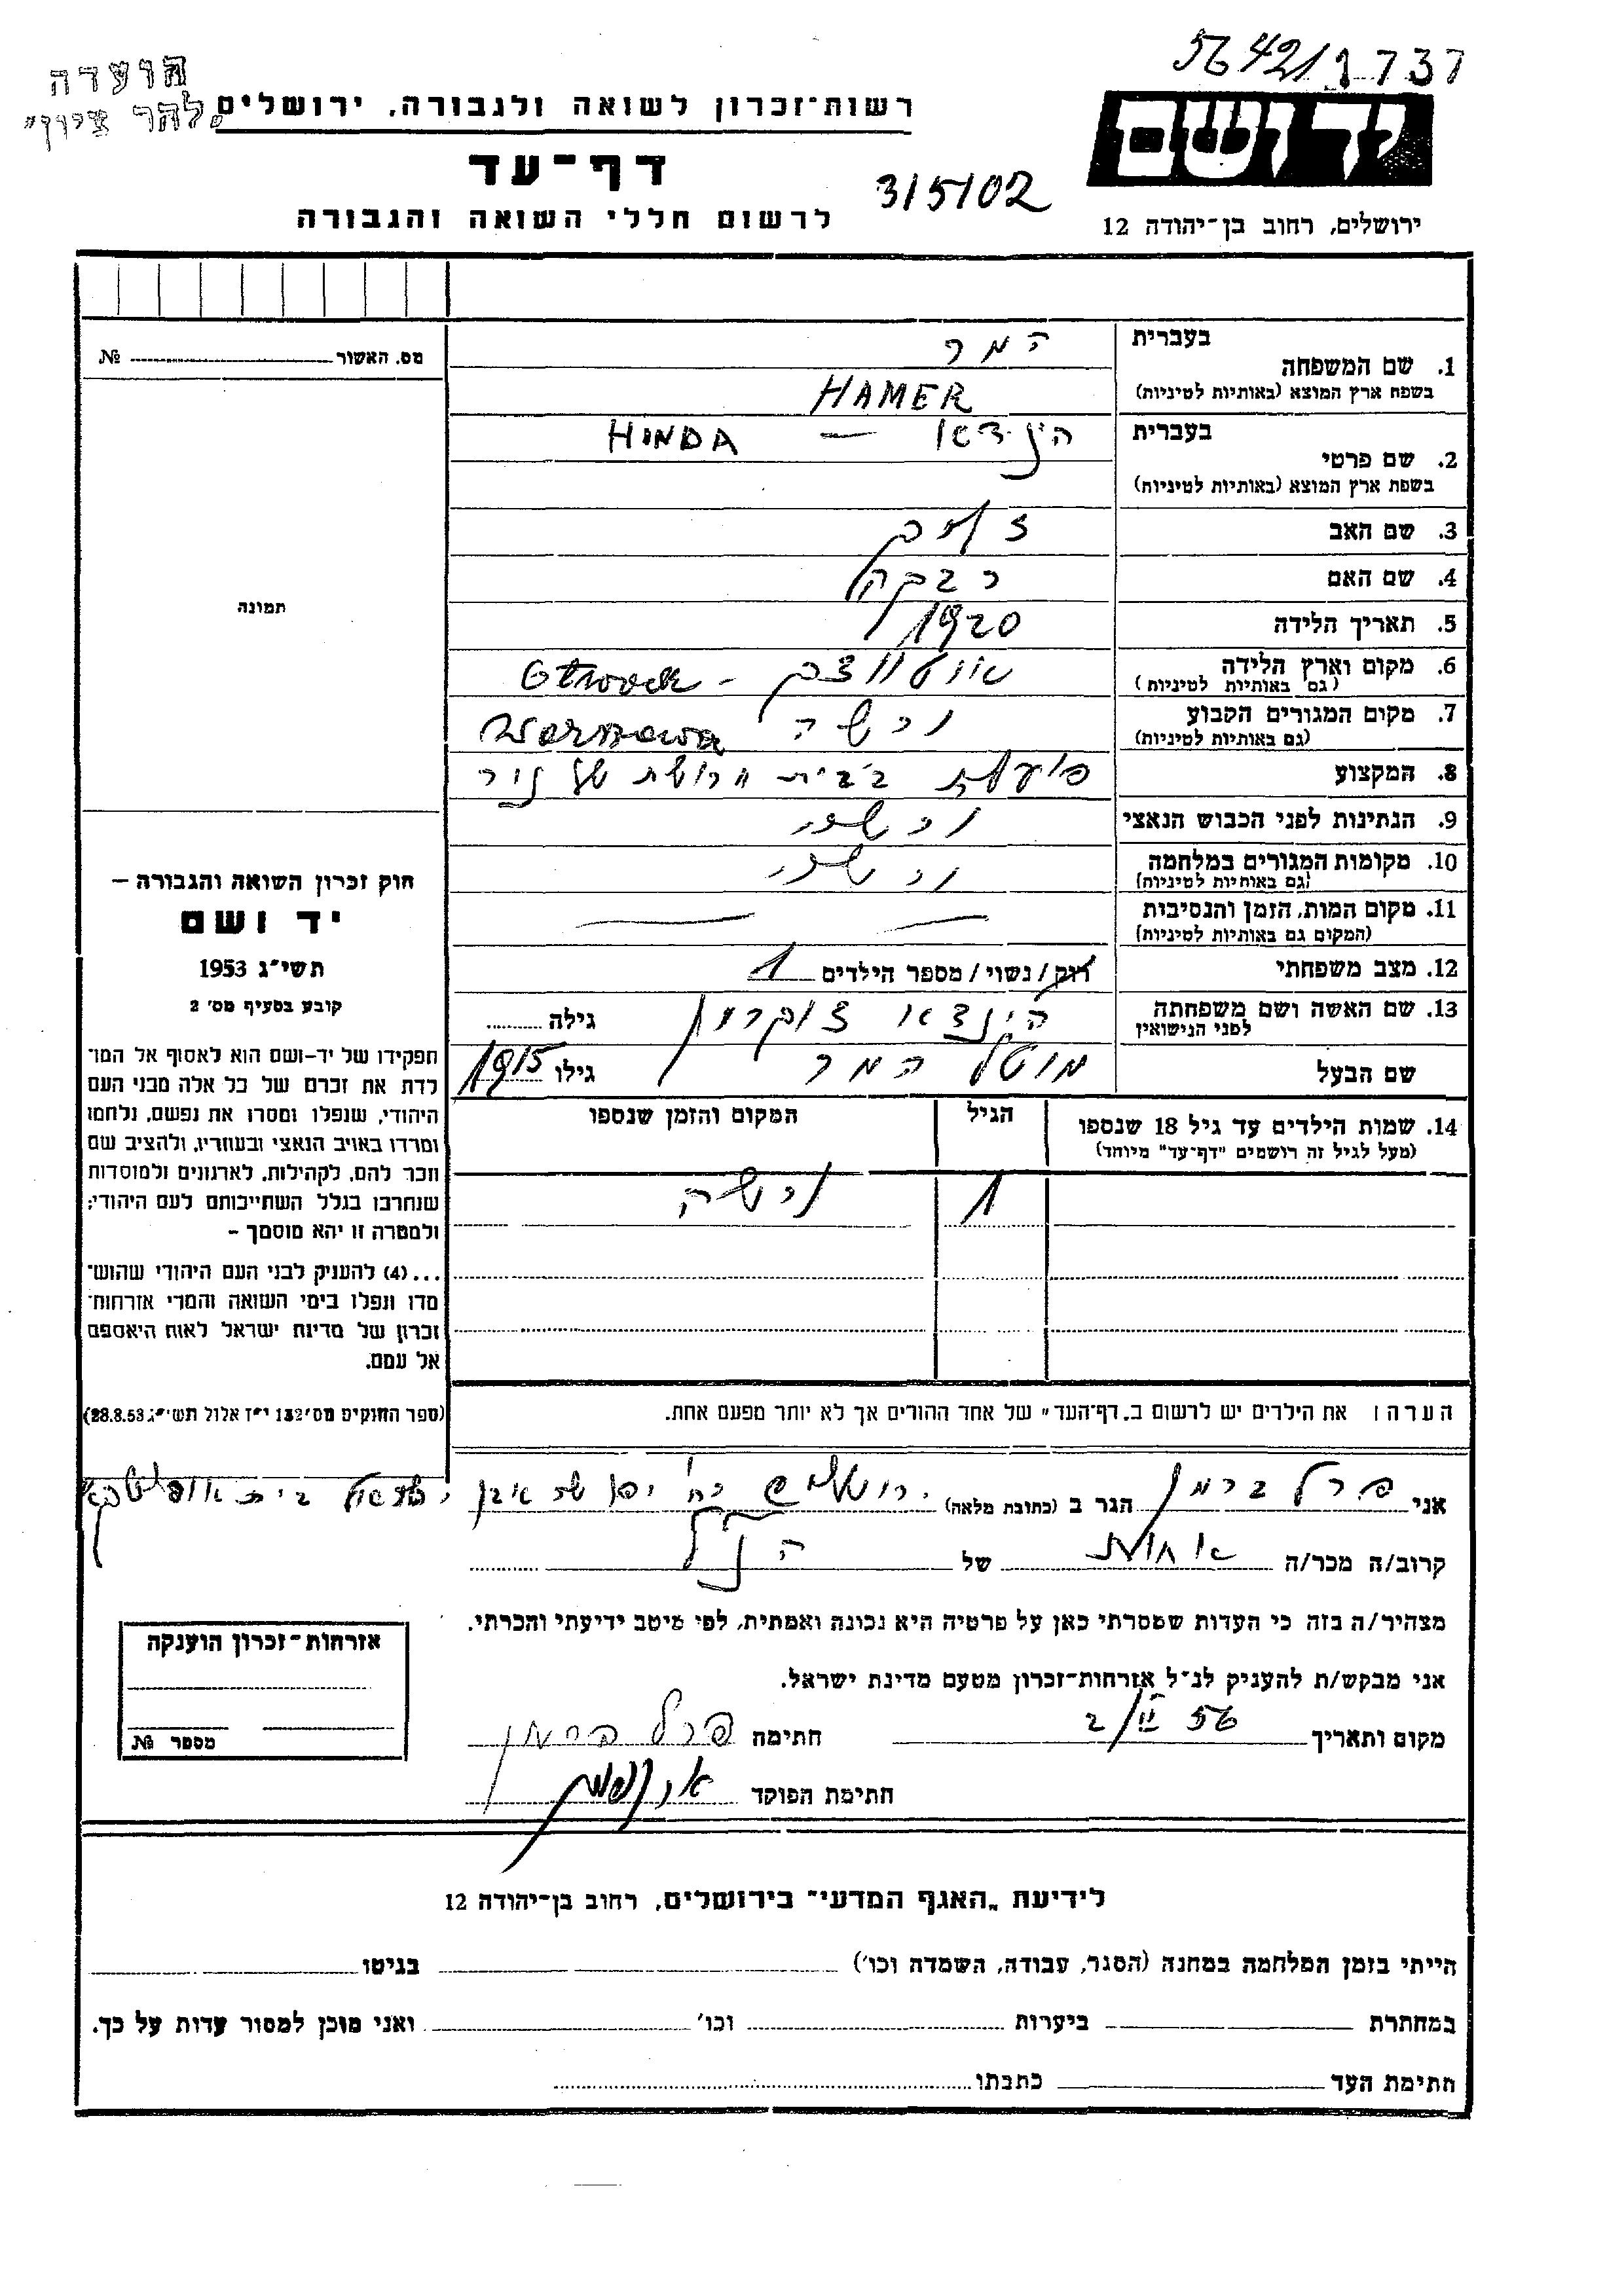 56421 1737
הועדה
"להר ציון"
יד ושם
ירושלים, רחוב בן-יהודה 12
רשות-זכרון לשואה ולגבורה, ירושלים
דף-עד
3/5/02
לרשום חללי השואה והגבורה
מס. האשור № 
תמונה
1. שם המשפחה
בעברית המר
בשפת ארץ המוצא (באותיות לטיניות) HAMER
2. שם פרטי
בעברית הינדא — HINDA
בשפת ארץ המוצא (באותיות לטיניות)
3. שם האב
4. שם האם רבקה
5. תאריך הלידה 1920
6. מקום וארץ הלידה אוטווצק - Otwock
(גם באותיות לטיניות)
7. מקום המגורים הקבוע ורשה Warszawa
(גם באותיות לטיניות)
8. המקצוע פועלת בבית חרושת של ניר
9. הנתינות לפני הכבוש הנאצי
10. מקומות המגורים במלחמה
(גם באותיות לטיניות)
11. מקום המות, הזמן והנסיבות — —
(המקום גם באותיות לטיניות)
12. מצב משפחתי רוק/נשוי/ מספר הילדים 1
13. שם האשה ושם משפחתה הינדא צוקרמן גילה
לפני הנישואין
שם הבעל מוטל המר גילו 1915
14. שמות הילדים עד גיל 18 שנספו הגיל המקום והזמן שנספו
(מעל לגיל זה רושמים "דף-עד" מיוחד)
1 ורשה
חוק זכרון השואה והגבורה –
יד ושם
תשי"ג 1953
קובע בסעיף מס' 2
תפקידו של יד-ושם הוא לאסוף אל המו-
לדת את זכרם של כל אלה מבני העם
היהודי, שנפלו ומסרו את נפשם, נלחמו
ומרדו באויב הנאצי ובעוזריו, ולהציב שם
וזכר להם, לקהילות, לארגונים ולמוסדות
שנחרבו בגלל השתייכותם לעם היהודי;
ולמטרה זו יהא מוסמך –
...(4) להעניק לבני העם היהודי שהוש-
מדו ונפלו בימי השואה והמרי אזרחות-
זכרון של מדינת ישראל לאות היאספם
אל עמם.
(ספר החוקים מס' 132 י"ז אלול תשי"ג 28.8.53)
הערה: את הילדים יש לרשום ב"דף-העד" של אחד ההורים אך לא יותר מפעם אחת.
אני פרל ברמן הגר ב (כתובת מלאה) ירושלים רח' אבן ישראל בית
קרוב/ה מכר/ה אחות של הנ"ל
מצהיר/ה בזה כי העדות שמסרתי כאן על פרטיה היא נכונה ואמתית, לפי מיטב ידיעתי והכרתי.
אני מבקש/ת להעניק לנ"ל אזרחות-זכרון מטעם מדינת ישראל.
מקום ותאריך 2/II 56 חתימה פרל ברמן
חתימת הפוקד
אזרחות-זכרון הוענקה
מספר №
לידיעת "האגף המדעי" בירושלים, רחוב בן-יהודה 12
הייתי בזמן המלחמה במחנה (הסגר, עבודה, השמדה וכו') בגיטו
במחתרת ביערות וכו' ואני מוכן למסור עדות על כך.
חתימת העד כתבתו